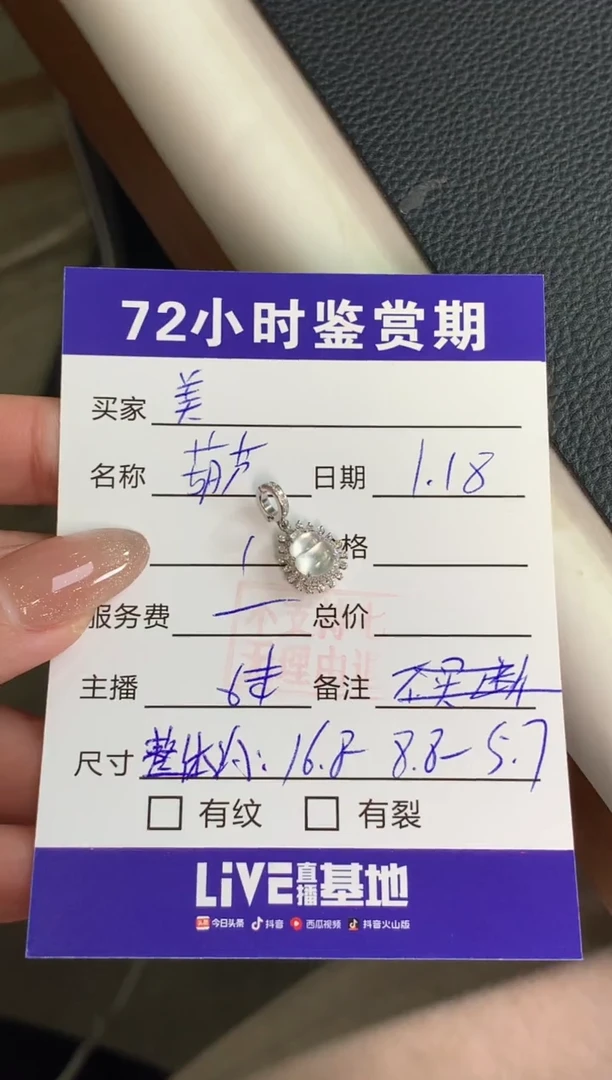 72小时鉴赏期
买家 美
名称 葫芦 日期 1.18
1 格
服务费 一 总价
主播 备注
尺寸 整体约: 16.8 8.8-5.7
□ 有纹 □ 有裂
LiVE直播基地
头条 今日头条 抖音 西瓜视频 抖音火山版